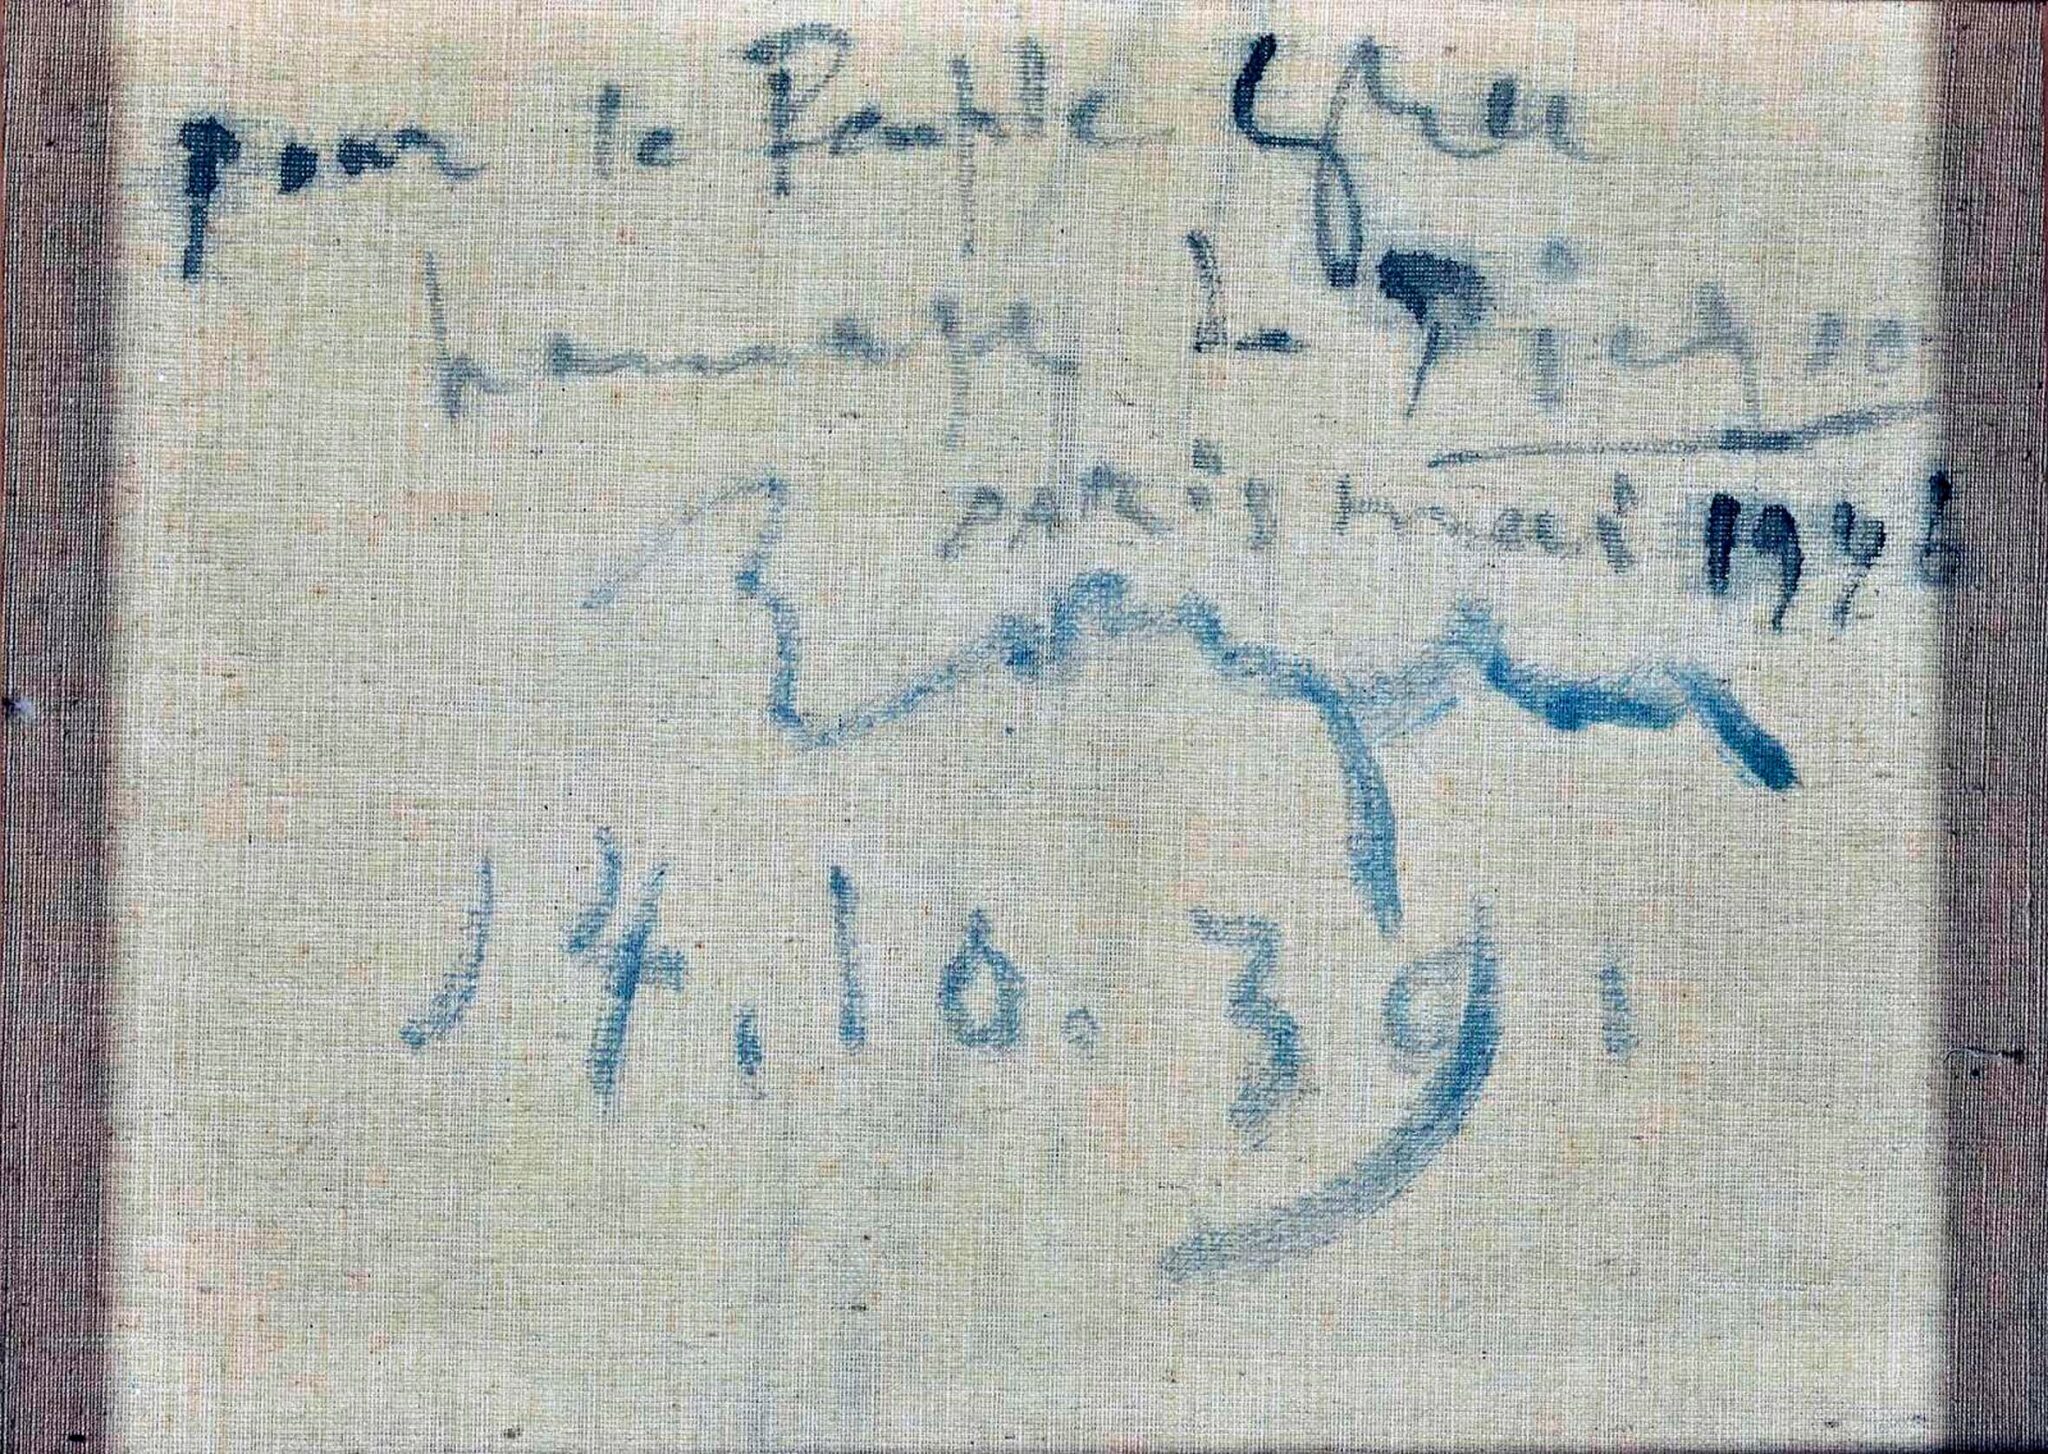 pour le Peuple Grec
hommage de Picasso
PARis mai 1946
14.10.39.